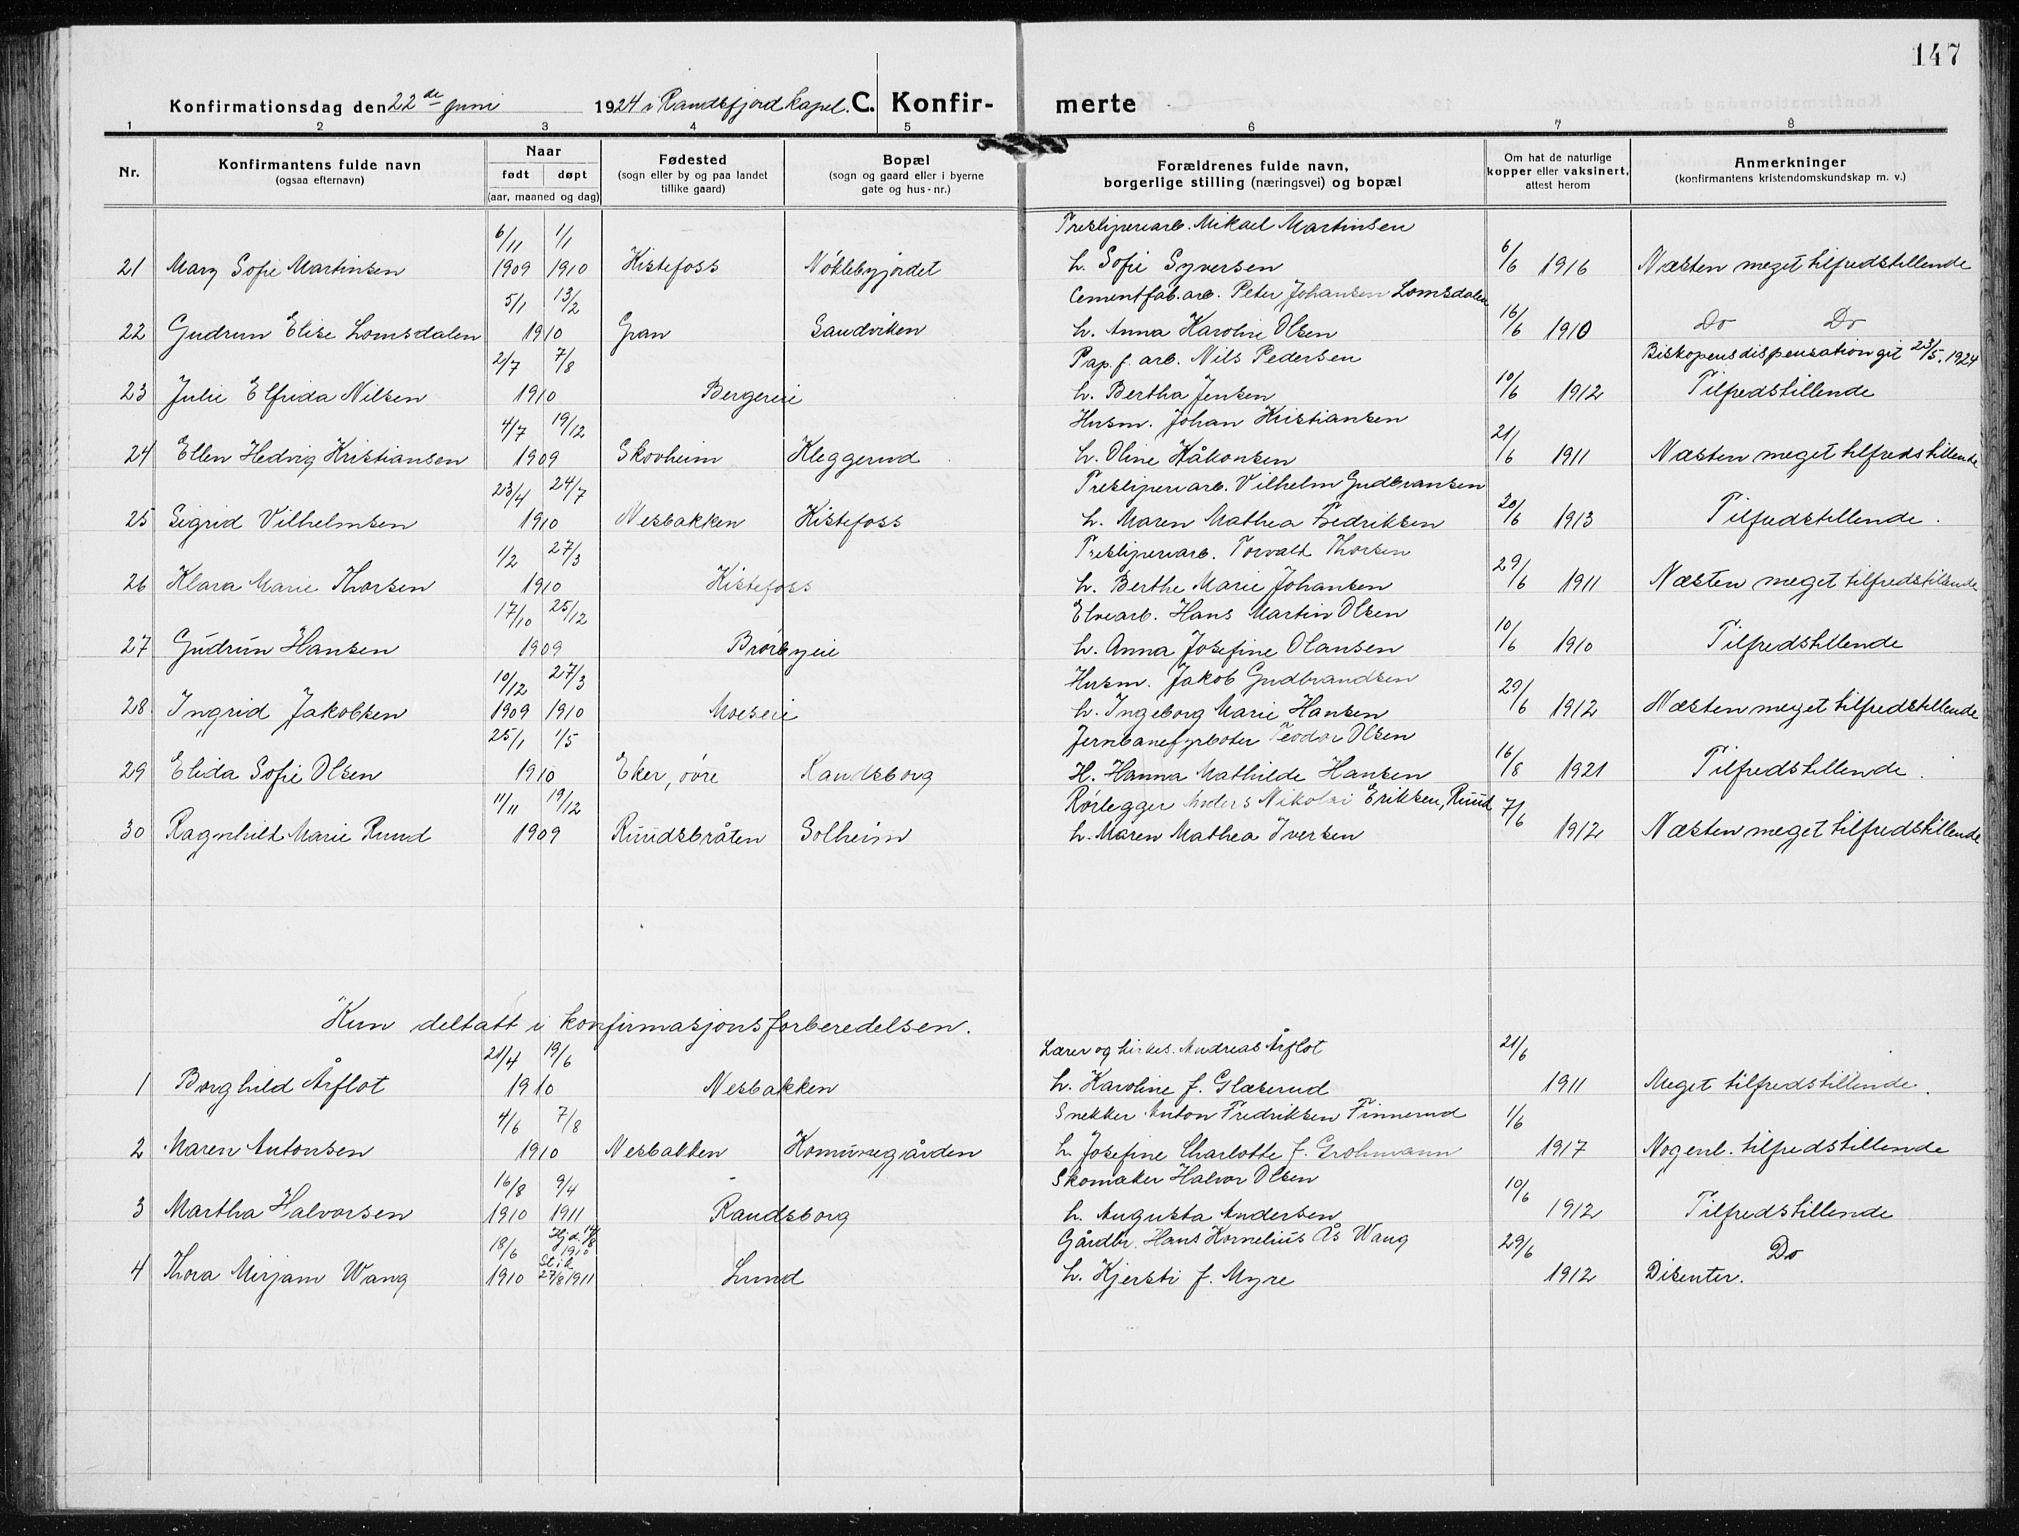 147
Konfirmationsdag den 22de Juni 1924 i Randsfjord kapel. C. Konfir- merte
1 2 3 4 5 6 7 8
Nr. Konfirmantens fulde navn (ogsaa efternavn) Naar født døpt (aar, maaned og dag) Fødested (sogn eller by og paa landet tillike gaard) Bopæl (sogn og gaard eller i byerne gate og hus-nr.) Forældrenes fulde navn, borgerlige stilling (næringsvei) og bopæl Om hat de naturlige kopper eller vaksinert, attest herom Anmerkninger (konfirmantens kristendomskundskap m. v.)
6/11 1/1 Træsliperiarb. Mikael Martinsen
21 Mary Sofie Martinsen 1909 1910 Kistefoss Nøklebyjordet h. Sofie Syversen 6/6 1916 Næsten meget tilfredstillende
5/1 13/2 Cementfab. arb. Peter Johansen Lomsdalen
22 Gudrun Elise Lomsdalen 1910 Gran Sandviken h. Anna Karoline Olsen 16/6 1910 Do Do
2/7 7/8 Pap. f. arb. Nils Pedersen Biskopens dispensation git 23/5. 1924
23 Julie Elfrida Nilsen 1910 Bergereie h. Bertha Jensen 10/6 1912 Tilfredstillende
4/7 19/12 Husm. Johan Kristiansen
24 Ellen Hedvig Kristiansen 1909 Skovheim Kleggerud h. Oline Håkonsen 21/6 1911 Næsten meget tilfredstillende
23/4 24/7 Træsliperiarb. Vilhelm Gudbransen
25 Sigrid Vilhelmsen 1910 Nesbakken Kistefoss h. Maren Mathea Fredriksen 20/6 1913 Tilfredstillende.
1/2 27/3 Træsliperiarb. Torvald Thorsen
26 Klara Marie Thorsen 1910 Kistefoss h. Berthe Marie Johansen 29/6 1911 Næsten meget tilfredstillende
17/10 25/12 Elvearb. Hans Martin Olsen
27 Gudrun Hansen 1909 Brørbyeie h. Anna Josefine Olansen 10/6 1910 Tilfredstillende
10/12 27/3 Husm. Jakob Gudbrandsen
28. Ingrid Jakobsen 1909 1910 Moeseie h. Ingeborg Marie Hansen 29/6 1912 Næsten meget tilfredstillende
25/1 1/5 Jernbanefyrbøter Teodor Olsen
29 Elida Sofie Olsen 1910 Eker, øvre Randsborg H. Hanna Mathilde Hansen 16/8 1921 Tilfredstillende.
11/11 19/12 Rørlegger Anders Nikolai Eriksen, Ruud
30 Ragnhild Marie Ruud 1909 Ruudsbråten Solheim h. Maren Mathea Iversen 7/6 1912 Næsten meget tilfredstillende
Kun deltatt i konfirmasjonsforberedelsen.
21/4 19/6 Lærer og kirkes. Andreas Årflot 21/6
1 Borghild Årflot 1910 Nesbakken h. Karoline f. Glæserud 1911 Meget tilfredstillende.
4/6 7/8 Snekker Anton Fredriksen Finnerud 1/6
2 Maren Antonsen 1910 Nesbakken Komunegården h. Josefine Charlotte f. Grohmann 1917 Nogenl. tilfredstillende
16/8 9/4 Skomaker Halvor Olsen 10/6
3 Martha Halvorsen 1910 1911 Randsborg h. Augusta Andersen 1912 Tilfredstillende
18/6 Hjd. 1910 Gårdbr. Hans Kornelius Ås Wang 29/6 Do
4 Thora Mirjam Wang 1910 St i k 27/8 1911 Lund h. Kjersti f. Myre 1912 Disenter.